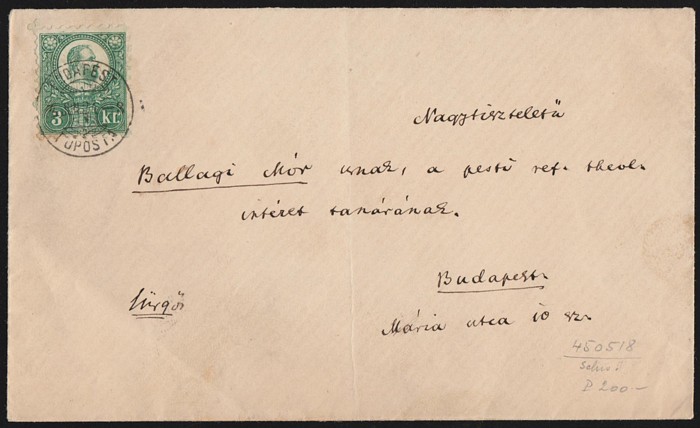 BUDAPEST
FŐPOSTA
3 kr
Nagytiszteletű
Ballagi Mór urnak, a pesti ref. theol.
intézet tanárának.
Budapest.
Sürgős
Mária utca 10 sz.
450518
P 200.—